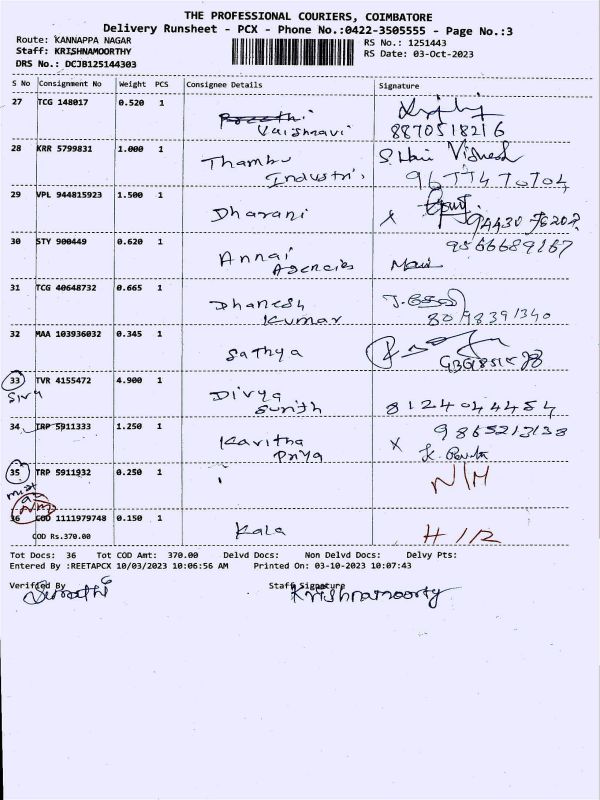 THE PROFESSIONAL COURIERS, COIMBATORE
Delivery Runsheet - PCX - Phone No.:0422-3505555 - Page No.:3
Route: KANNAPPA NAGAR
Staff: KRISHNAMOORTHY
DRS No.: DCJB125144303
RS No.: 1251443
RS Date: 03-Oct-2023
S No Consignment No Weight PCS Consignee Details Signature
27 TCG 148017 0.520 1
Vaishnavi 8870518216
28 KRR 5799831 1.000 1 Thambu
Industri 9677470704
29 VPL 944815923 1.500 1 Dharani X
30 STY 900449 0.620 1 Annai 9566689167
Agencies Mani
31 TCG 40648732 0.665 1 Dhanesh
Kumar 8098391340
32 MAA 103936032 0.345 1 Sathya
33 TVR 4155472 4.900 1 Divya
Sunith 8124044454
34 TRP 5911333 1.250 1 Kavitha 9865213138
Priya X
35 TRP 5911932 0.250 1 N/H
36 COD 1111979748 0.150 1 Kala
COD Rs.370.00
Tot Docs: 36 Tot COD Amt: 370.00 Delvd Docs: Non Delvd Docs: Delvy Pts:
Entered By :REETAPCX 10/03/2023 10:06:56 AM Printed On: 03-10-2023 10:07:43
Verified By Staff Signature
Krishnamoorty